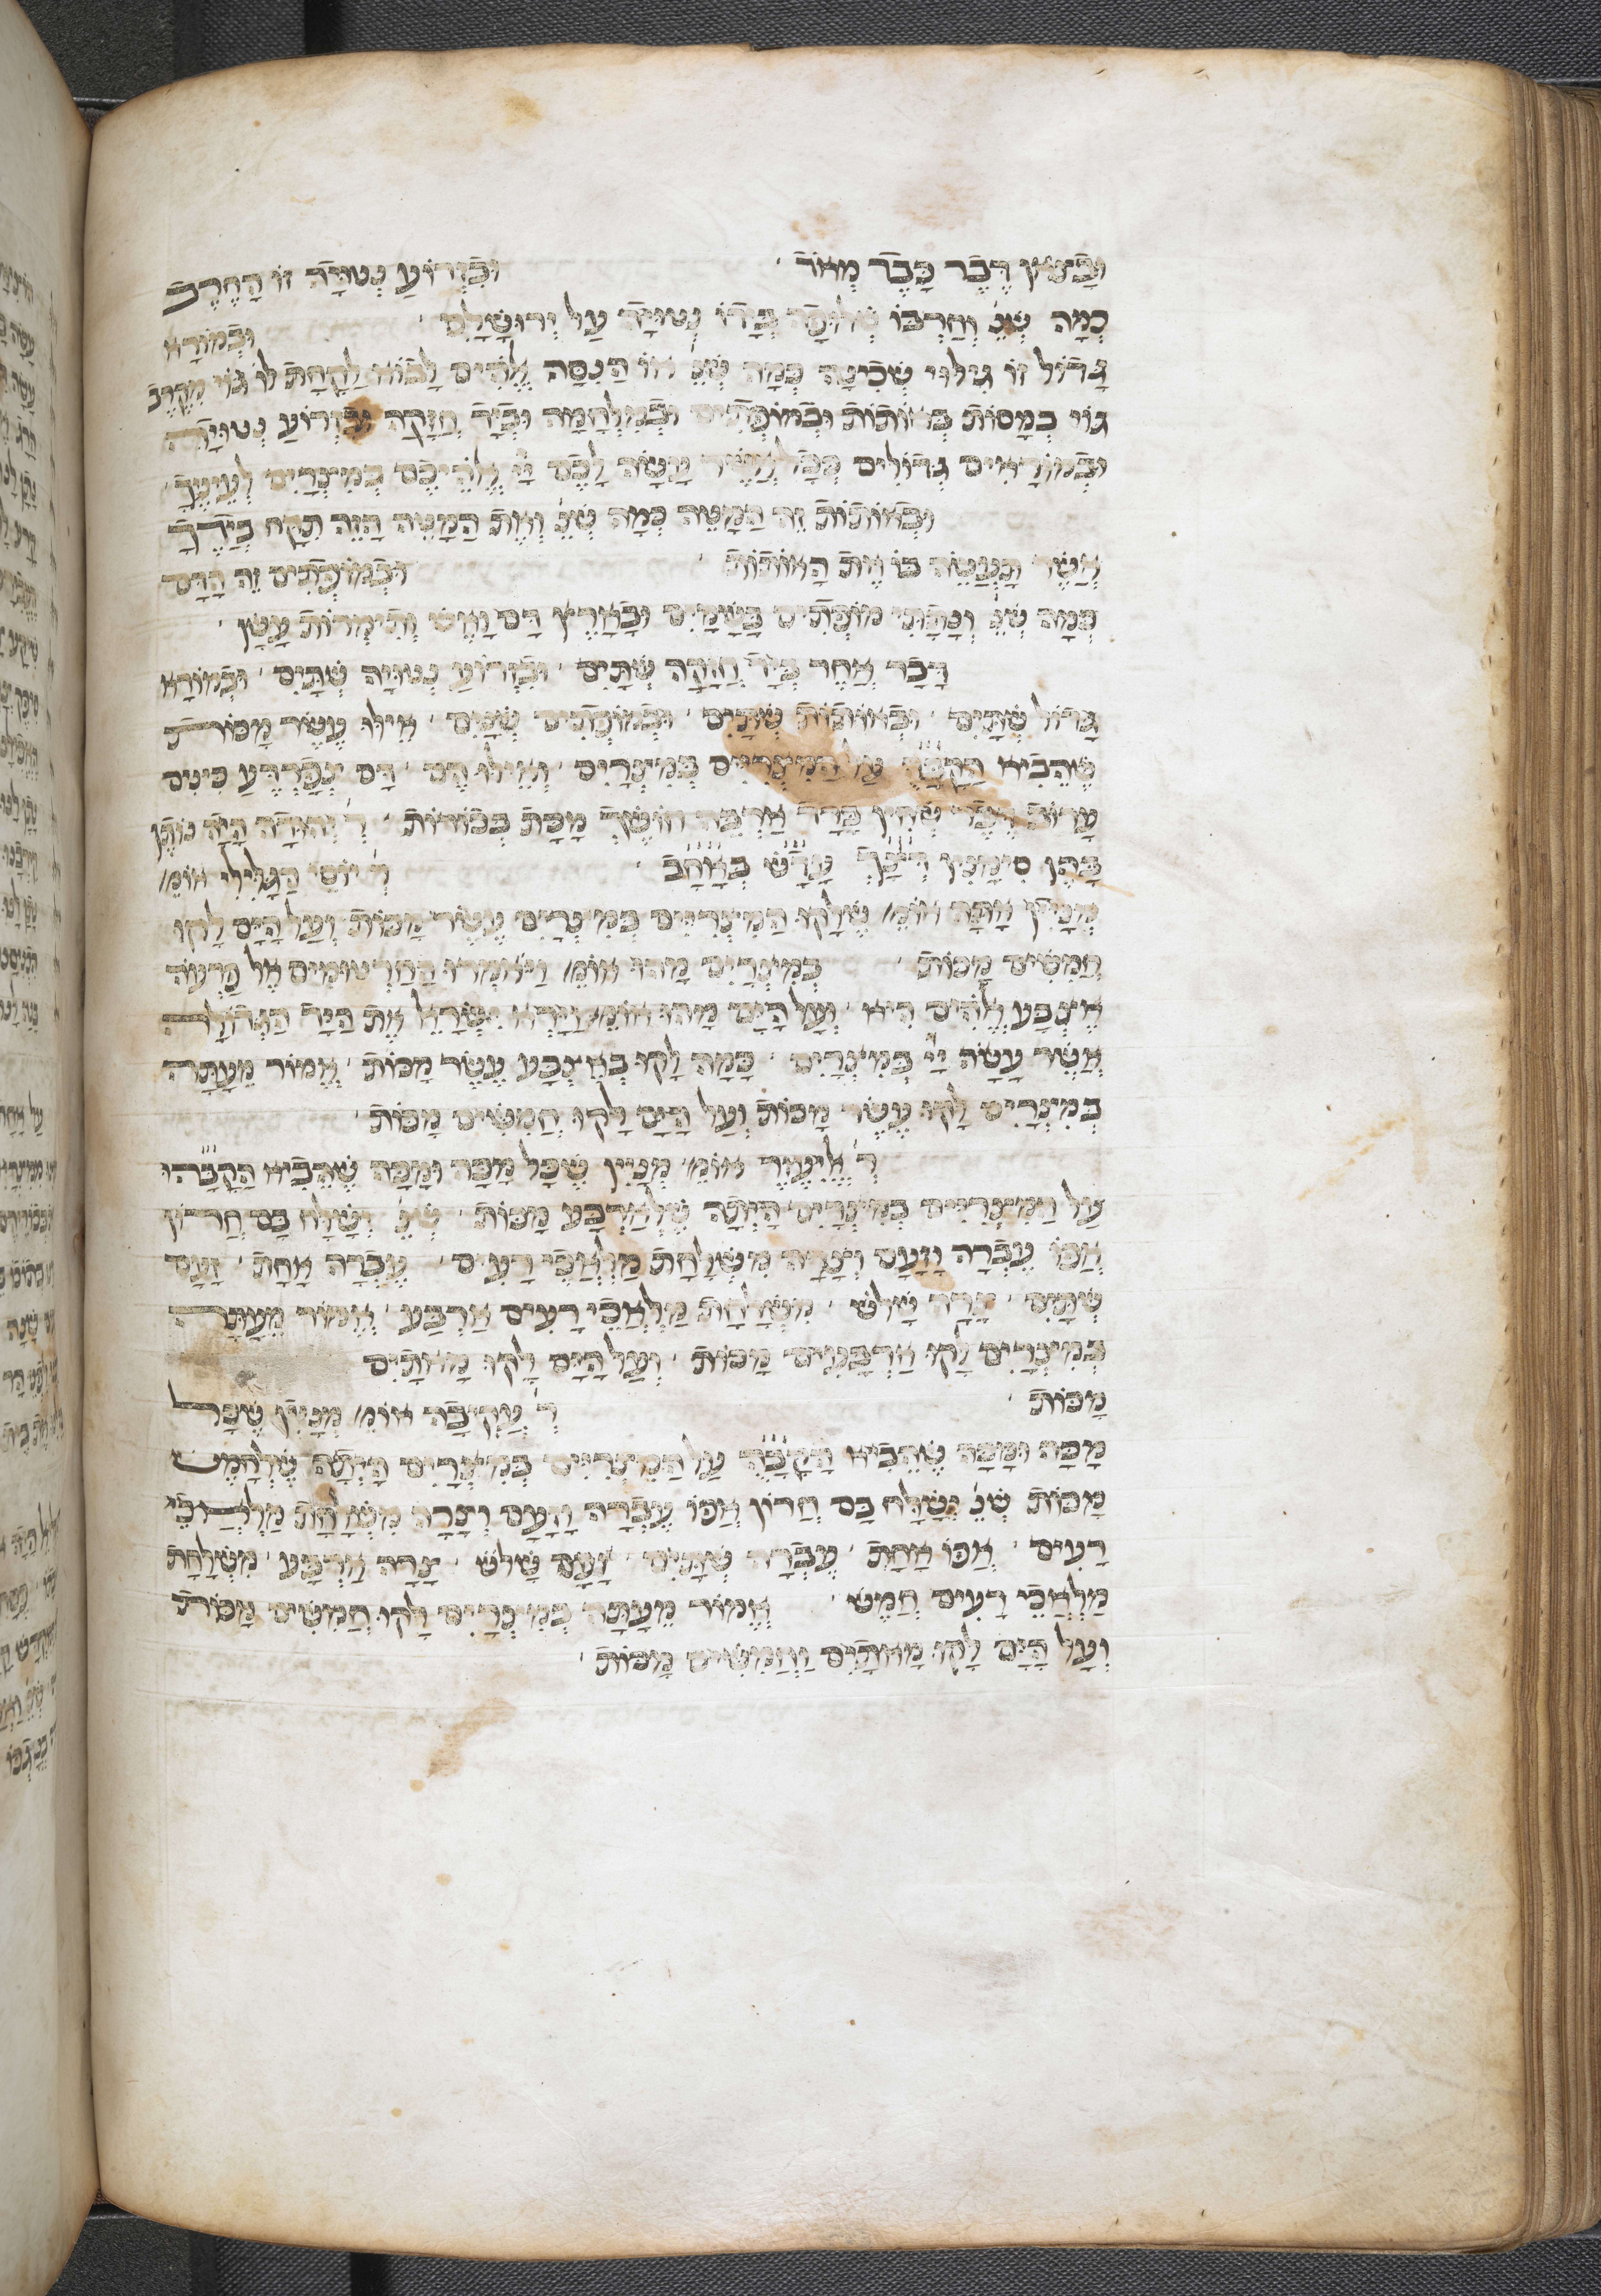 וּבַצֹּאן דֶּבֶר כָּבֵד מְאֹד׳ וּבִזְרוֹעַ נְטוּיָה זוֹ הַחֶרֶב
כְּמָה שֶׁנֶּ׳ וְחַרְבּוֹ שְׁלוּפָה בְּיָדוֹ נְטוּיָה עַל יְרוּשָׁלָםִ׳ וּבְמוֹרָא
גָּדוֹל זוֹ גִילּוּי שְׁכִינָה כְּמָה שֶׁנֶּ׳ אוֹ הַנִסָּה אֱלֹהִים לָבוֹא לָקַחַת לוֹ גוֹי מִקֶּרֶב
גּוֹי בְּמַסּוֹת בְּאוֹתוֹת וּבְמוֹפְתִים וּבְמִלְחָמָה וּבְיָד חֲזָקָה וּבִזְרוֹעַ נְטוּיָה
וּבְמוֹרָאִים גְּדוֹלִים כְּכָל אֲשֶׁר עָשָׂה לָכֶם יְיָ אֱלֹהֵיכֶם בְּמִצְרַיִם לְעֵינֶיךָ׳
וּבְאוֹתוֹת זֶה הַמַּטֶּה כְּמָה שֶׁנֶּ׳ וְאֶת הַמַּטֶּה הַזֶּה תִּקַּח בְּיָדֶךָ
אֲשֶׁר תַּעֲשֶׂה בּוֹ אֶת הָאוֹתוֹת׳ וּבְמוֹפְתִים זֶה הַדָּם
כְּמָה שֶׁנֶּ׳ וְנָתַתִּי מוֹפְתִים בַּשָּׁמַיִם וּבָאָרֶץ דָּם וָאֵשׁ וְתִימְרוֹת עָשָׁן׳
דָּבָר אַחֵר בְּיָד חֲזָקָה שְׁתַּיִם׳ וּבִזְרוֹעַ נְטוּיָה שְׁתַּיִם׳ וּבְמוֹרָא
גָּדוֹל שְׁתַּיִם׳ וּבְאוֹתוֹת שְׁתַּיִם׳ וּבְמוֹפְתִים שְׁתַּיִם׳ אִילּוּ עֶשֶׂר מַכּוֹת
שֶׁהֵבִיא הַקָּבָּ״ה עַל הַמִּצְרִיִּים בְּמִצְרַיִם׳ וְאִילּוּ הֵם׳ דָּם צְפַרְדֵּעַ כִּינִים
עָרוֹב דֶּבֶר שְׁחִין בָּרָד אַרְבֶּה חוֹשֶׁךְ מַכַּת בְּכוֹרוֹת׳ ר׳ יְהוּדָה הָיָה נוֹתֵן
בָּהֶן סִימָנִין דְּצַ״ךְ עַדַ״שׁ בְּאַחַ״ב׳ ר׳ יוֹסֵי הַגְּלִילִי אוֹמֵ׳
מְנַיִין אַתָּה אוֹמֵ׳ שֶׁלָּקוּ הַמִּצְרִיִּים בְּמִצְרַיִם עֶשֶׂר מַכּוֹת וְעַל הַיָּם לָקוּ
חֲמִשִּׁים מַכּוֹת׳ בְּמִצְרַיִם מַהוּ אוֹמֵ׳ וַיֹּאמְרוּ הַחַרְטוּמִים אֶל פַּרְעֹה
אֶצְבַּע אֱלֹהִים הִיא׳ וְעַל הַיָּם מַהוּ אוֹמֵ׳ וַיַּרְא יִשְׂרָאֵל אֶת הַיָּד הַגְּדוֹלָה
אֲשֶׁר עָשָׂה יְיָ בְּמִצְרַיִם׳ כַּמָּה לָקוּ בְּאֶצְבַּע עֶשֶׂר מַכּוֹת׳ אֱמוֹר מֵעַתָּה
בְּמִצְרַיִם לָקוּ עֶשֶׂר מַכּוֹת וְעַל הַיָּם לָקוּ חֲמִשִּׁים מַכּוֹת׳
ר׳ אֱלִיעֶזֶר אוֹמֵ׳ מְנַיִין שֶׁכָּל מַכָּה וּמַכָּה שֶׁהֵבִיא הַקָּבָּ״הוּ
עַל הַמִּצְרִיִּים בְּמִצְרַיִם הָיְתָה שֶׁלְאַרְבַּע מַכּוֹת׳ שֶׁנֶּ׳ יְשַׁלַּח בָּם חֲרוֹן
אַפּוֹ עֶבְרָה וָזַעַם וְצָרָה מִשְׁלַחַת מַלְאֲכֵי רָעִים׳ עֶבְרָה אַחַת׳ זַעַם
שְׁתַּיִם׳ צָרָה שָׁלֹשׁ׳ מִשְׁלַחַת מַלְאֲכֵי רָעִים אַרְבַּע׳ אֱמוֹר מֵעַתָּה
בְּמִצְרַיִם לָקוּ אַרְבָּעִים מַכּוֹת׳ וְעַל הַיָּם לָקוּ מָאתַיִם
מַכּוֹת׳ ר׳ עֲקִיבָה אוֹמֵ׳ מְנַיִין שֶׁכָּל
מַכָּה וּמַכָּה שֶׁהֵבִיא הַקָּבָּ״ה עַל הַמִּצְרִיִּים בְּמִצְרַיִם הָיְתָה שֶׁלְחָמֵשׁ
מַכּוֹת שֶׁנֶּ׳ יְשַׁלַּח בָּם חֲרוֹן אַפּוֹ עֶבְרָה וָזַעַם וְצָרָה מִשְׁלַחַת מַלְאֲכֵי
רָעִים׳ אַפּוֹ אַחַת׳ עֶבְרָה שְׁתַּיִם׳ זַעַם שָׁלֹשׁ׳ צָרָה אַרְבַּע׳ מִשְׁלַחַת
מַלְאֲכֵי רָעִים חָמֵשׁ׳ אֱמוֹר מֵעַתָּה בְּמִצְרַיִם לָקוּ חֲמִשִּׁים מַכּוֹת
וְעַל הַיָּם לָקוּ מָאתַיִם וַחֲמִשִּׁים מַכּוֹת׳